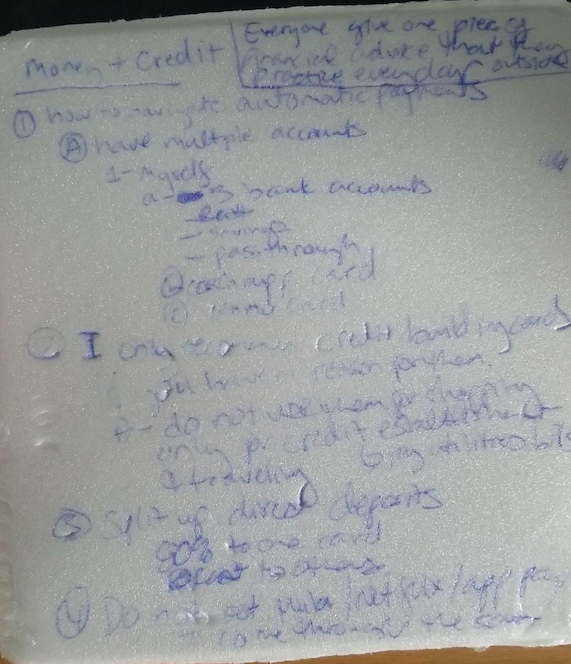 Money + Credit
Everyone give one piece of
financial advice that they
practice everyday outside
① how to navigate automatic payments
Ⓐ have multiple accounts
1- myself
a- 3 bank accounts
- savings
- passthrough
cash app card
card
② I only credit building cards
you have reason for them.
A- do not use them for shopping
only for credit establishment
traveling utilities bills
③ Split up direct deposits
80% to one card
to others
④ Do not set hulu/netflix/app pay
to come through the same